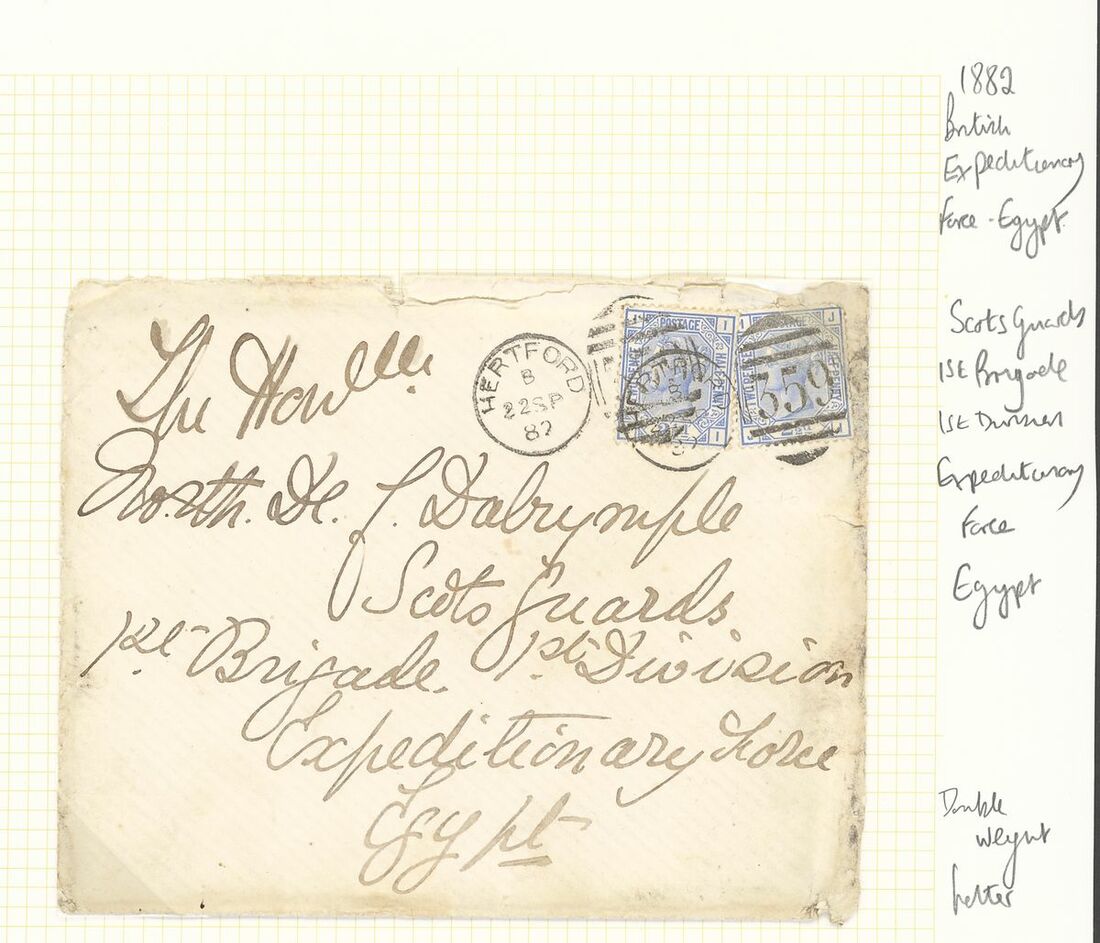 The Honble
North. De. J. Dalrymple
Scots Guards
1st Brigade. 1st Division
Expeditionary Force
Egypt
HERTFORD
B
22 SP
82
POSTAGE
HALFPENNY
23
I
J
559
1882
British
Expeditionary
Force - Egypt.
Scots Guards
1st Brigade
1st Division
Expeditionary
Force
Egypt
Double
weight
letter